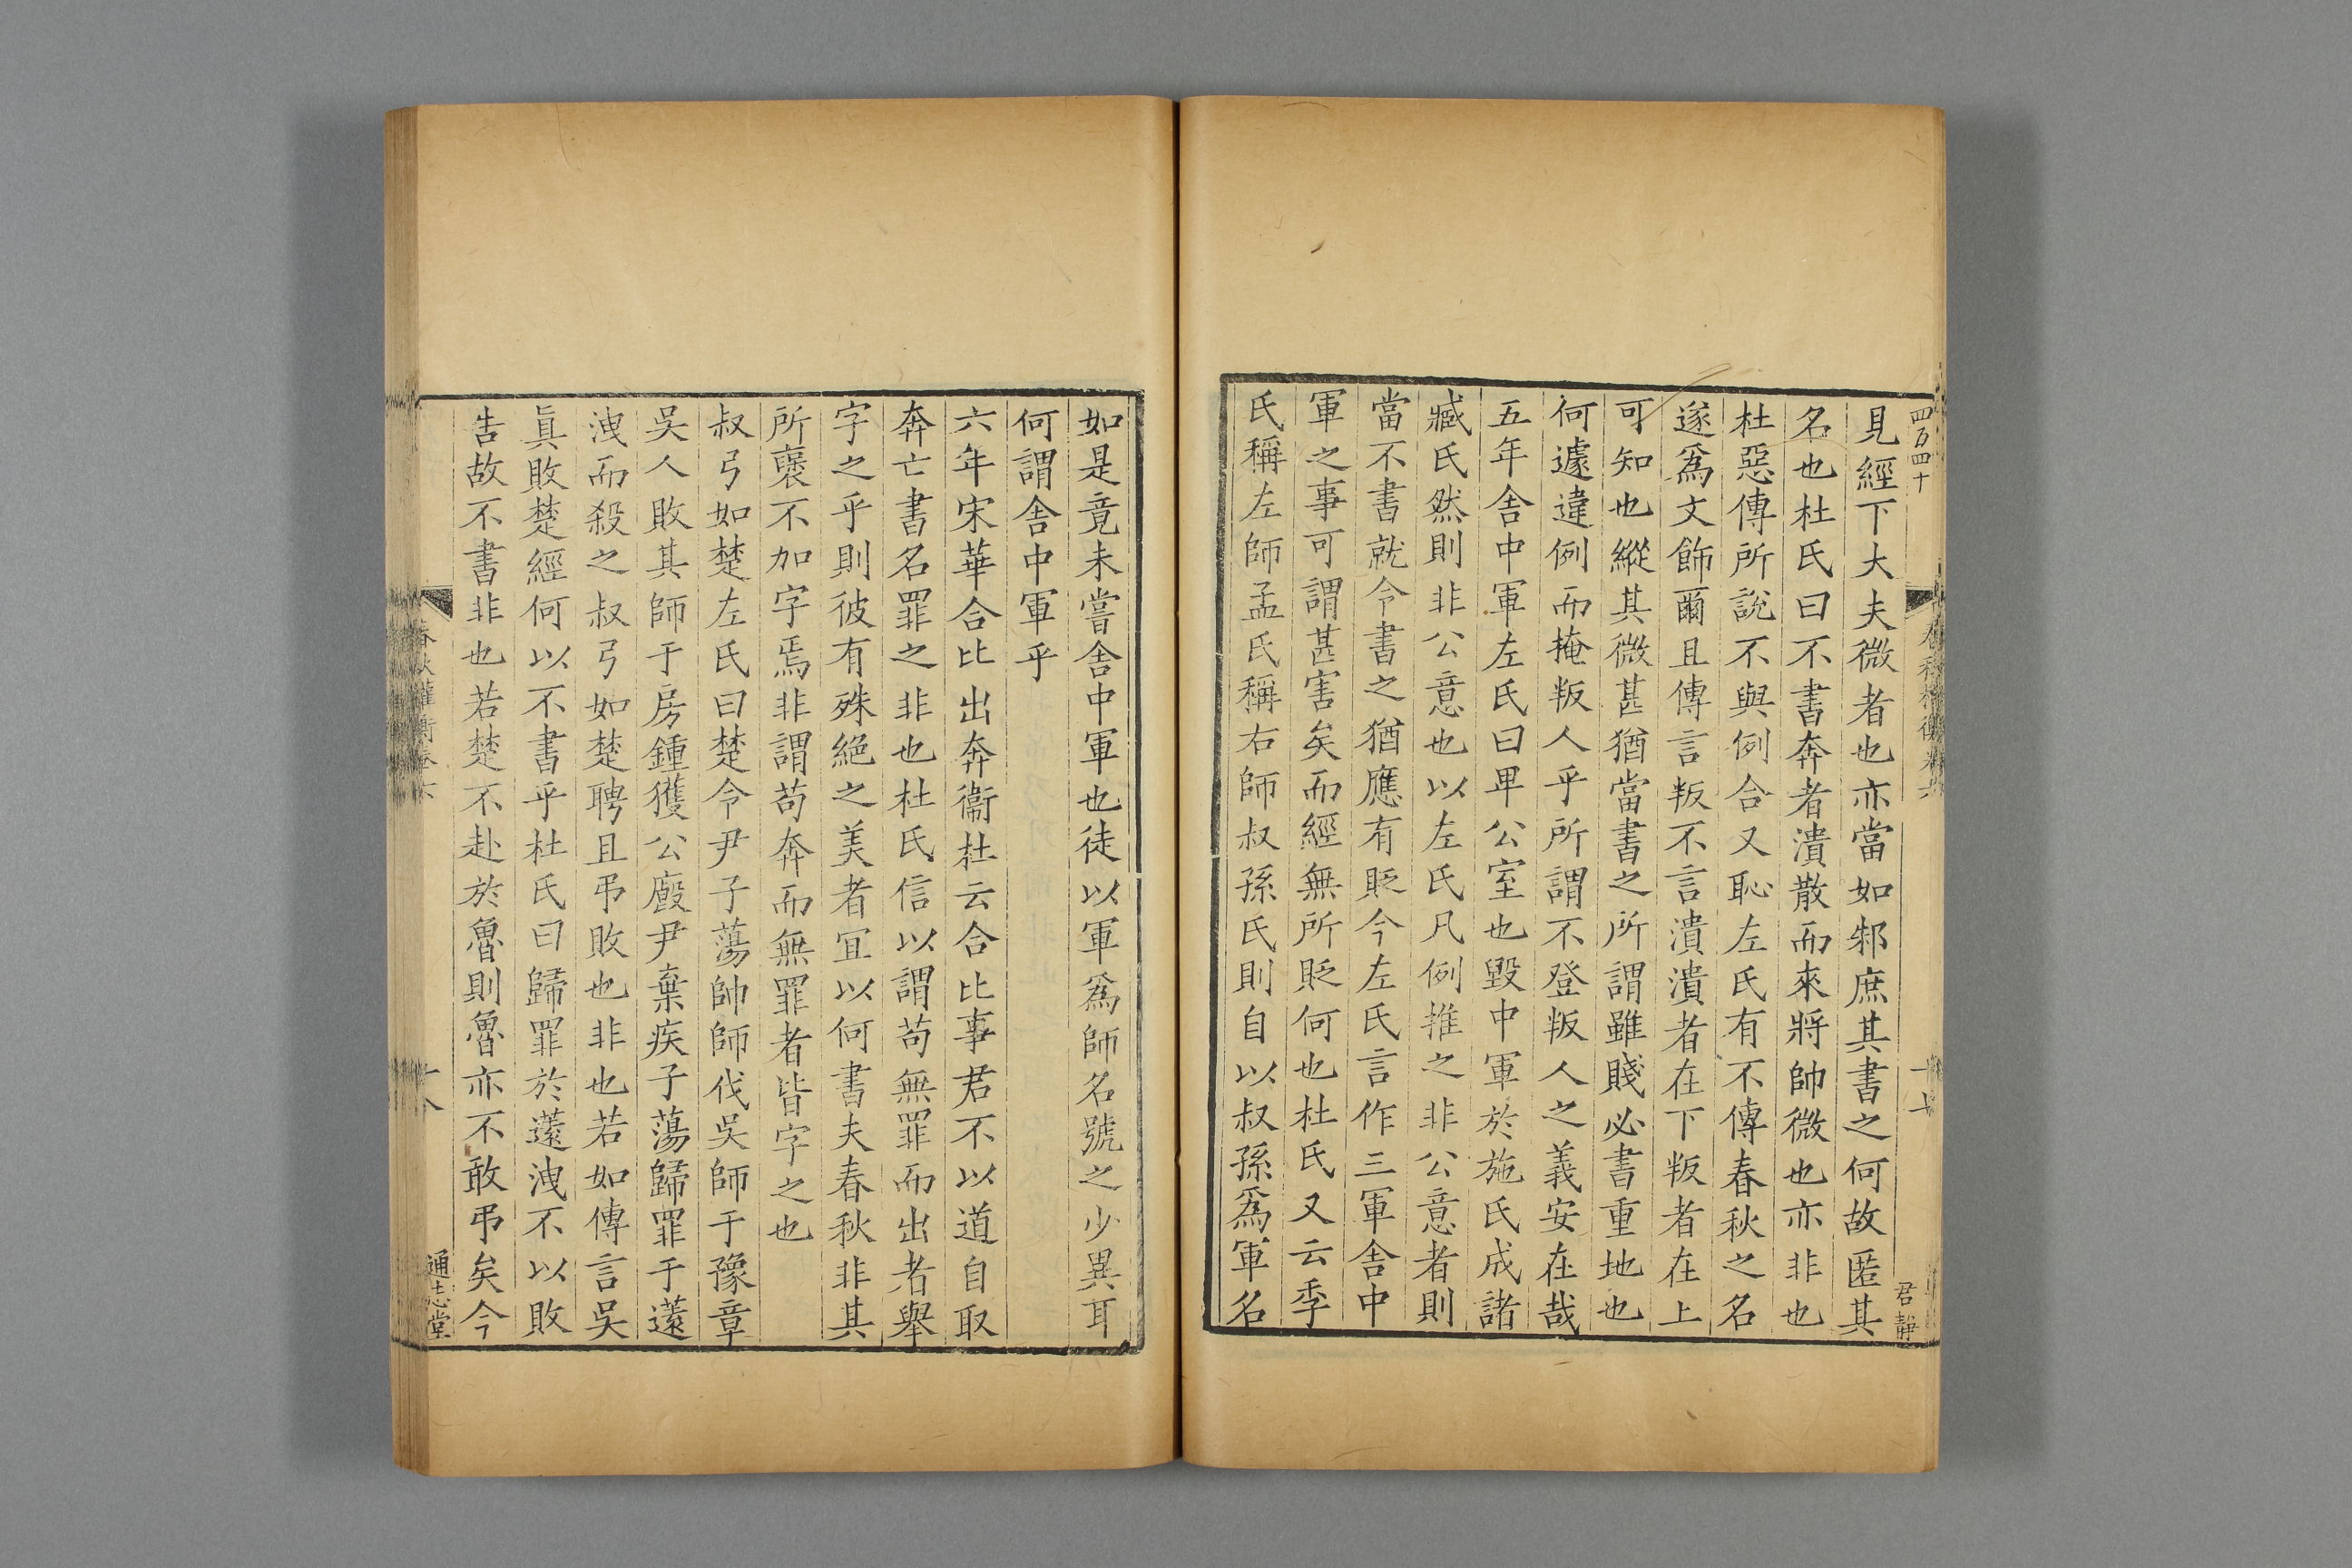 四百四十
春秋權衡卷六
十七
君靜
見經下大夫微者也亦當如邾庶其書之何故匿其
名也杜氏曰不書奔者潰散而來將帥微也亦非也
杜惡傳所說不與例合又恥左氏有不傳春秋之名
遂爲文飾爾且傳言叛不言潰潰者在下叛者在上
可知也縱其微甚猶當書之所謂雖賤必書重地也
何遽違例而掩叛人乎所謂不登叛人之義安在哉
五年舍中軍左氏曰卑公室也毀中軍於施氏成諸
臧氏然則非公意也以左氏凡例推之非公意者則
當不書就令書之猶應有貶今左氏言作三軍舍中
軍之事可謂甚害矣而經無所貶何也杜氏又云季
氏稱左師孟氏稱右師叔孫氏則自以叔孫爲軍名
如是竟未嘗舍中軍也徒以軍爲師名號之少異耳
何謂舍中軍乎
六年宋華合比出奔衞杜云合比事君不以道自取
奔亡書名罪之非也杜氏信以謂苟無罪而出者舉
字之乎則彼有殊絕之美者冝以何書夫春秋非其
所襃不加字焉非謂苟奔而無罪者皆字之也
叔弓如楚左氏曰楚令尹子蕩帥師伐吳師于豫章
吳人敗其師于房鍾獲公廄尹棄疾子蕩歸罪于薳
洩而殺之叔弓如楚聘且弔敗也非也若如傳言吳
眞敗楚經何以不書乎杜氏曰歸罪於薳洩不以敗
告故不書非也若楚不赴於魯則魯亦不敢弔矣今
春秋權衡卷六
十八
通志堂